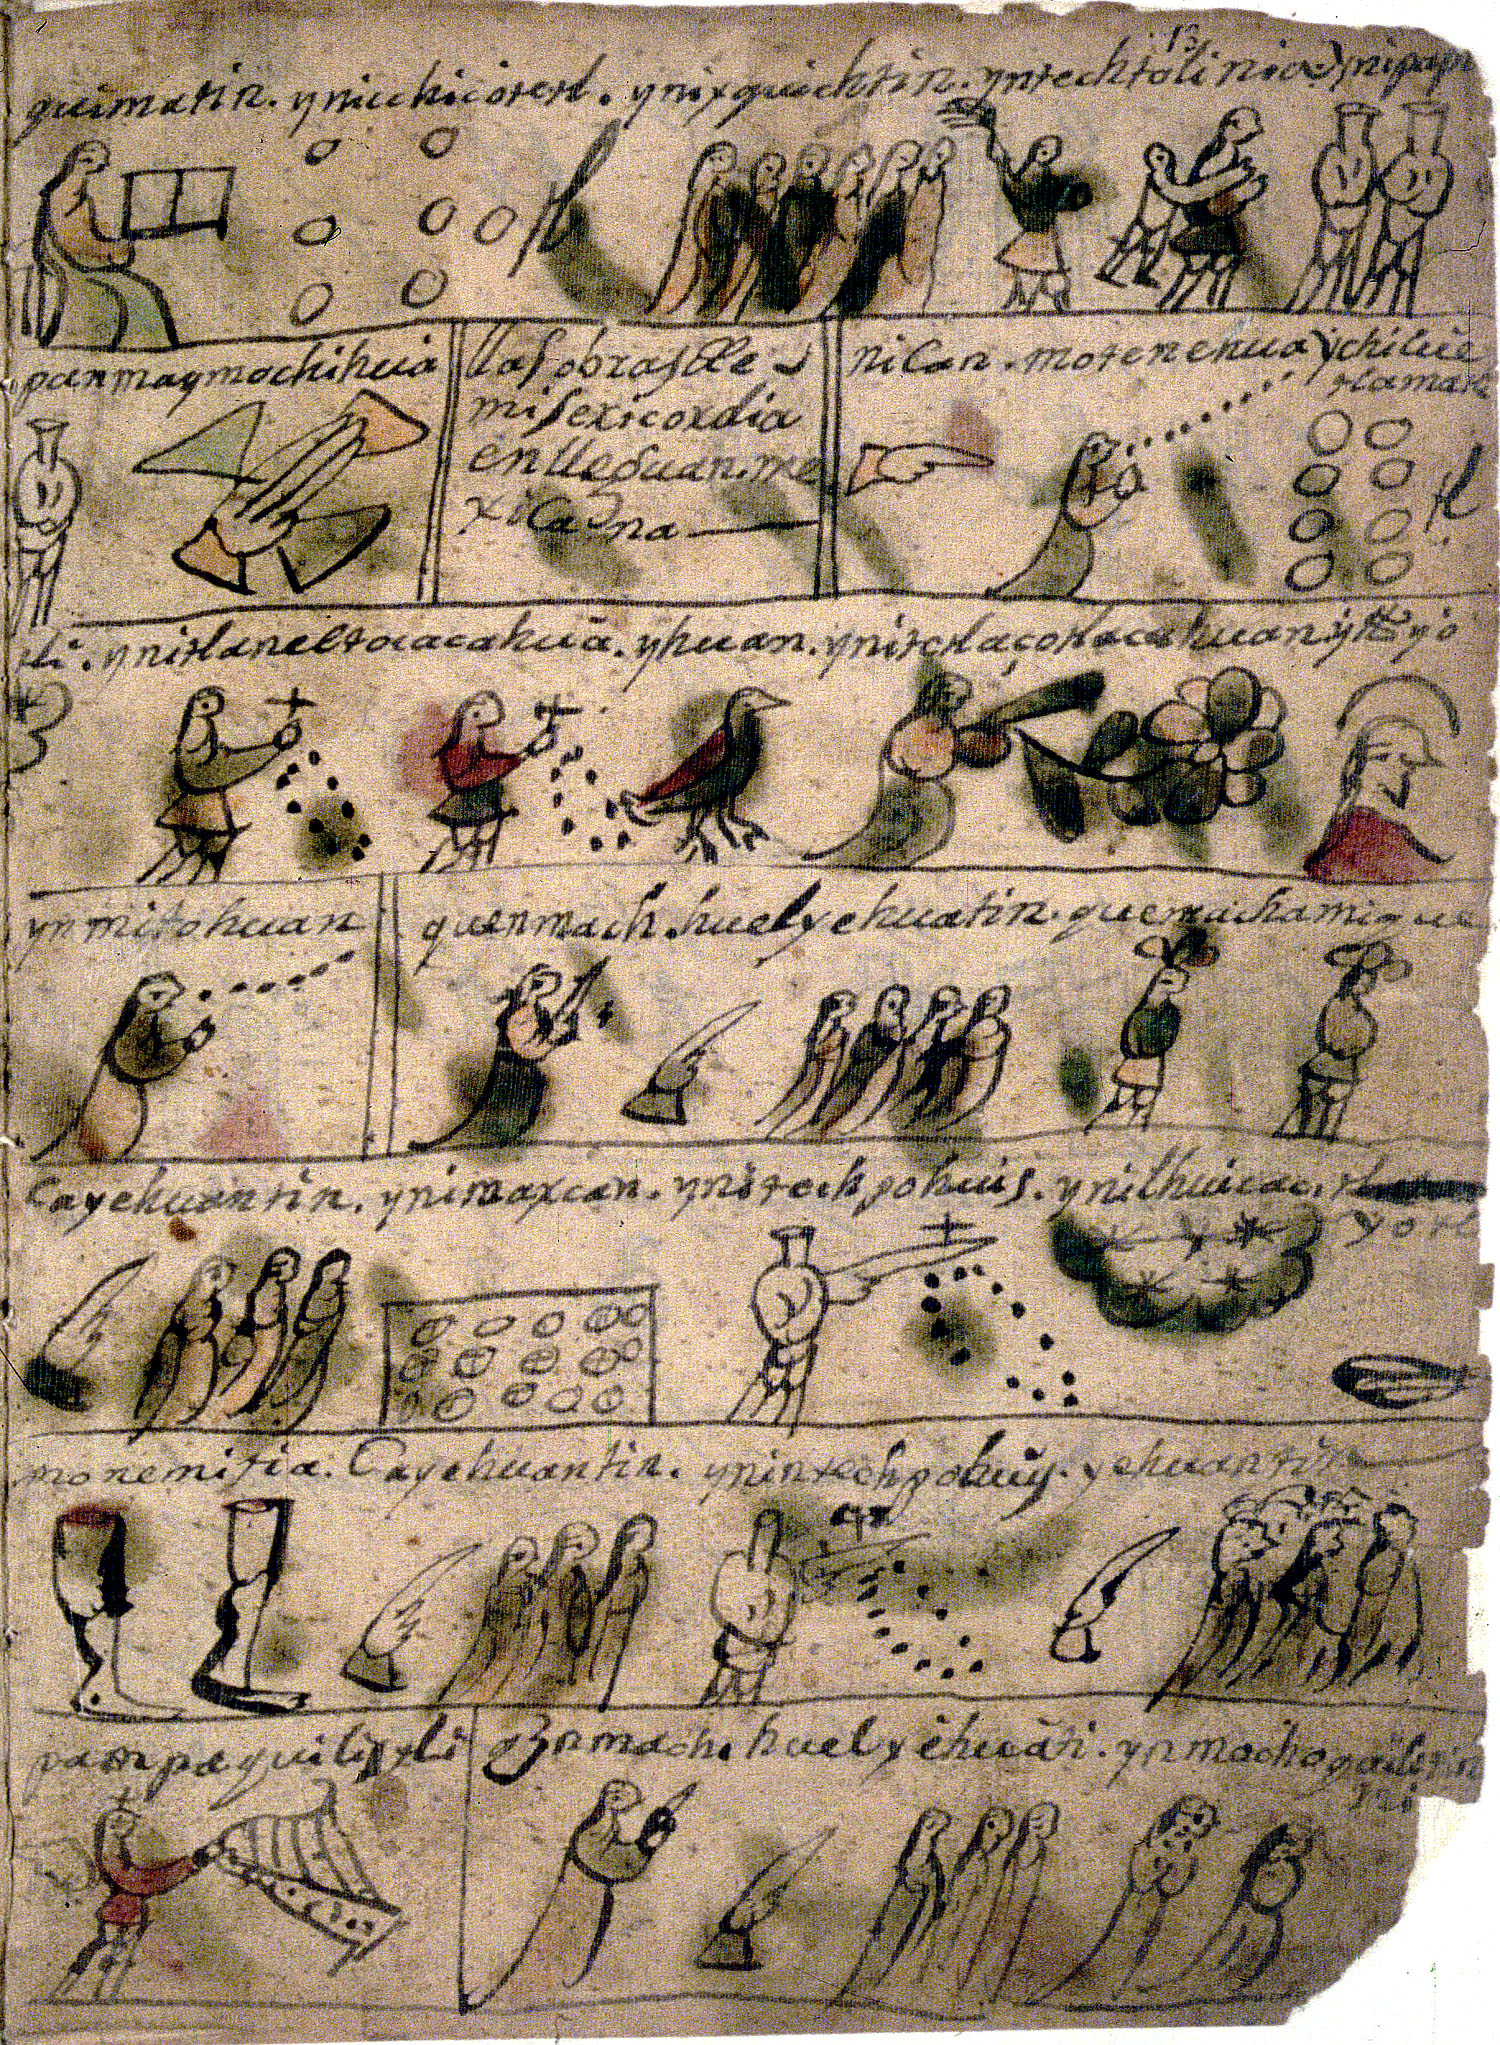 13
quimatin. ynicchicotetl. ynixquichtin. yntechtolinia
panmaymochihua
llas obras de
misericordia
en lleguan. me
xicana
nican. motenehua ychicue
tlamatn
tli. ynitlaneltocacahua. yhuan. ynitetlaçotlacahuan
ynmitohuan
quenmach. huelyehuatin. quenmachamique
cayehuantin. ynimaxcan. ynitechpohuis. ynilhuicac
yotl
monemitia. Cayehuantin. ynintechpohuy. yehuantin
panpaquilistli
q3nmach. huelyehuati. ynmochoquilitin